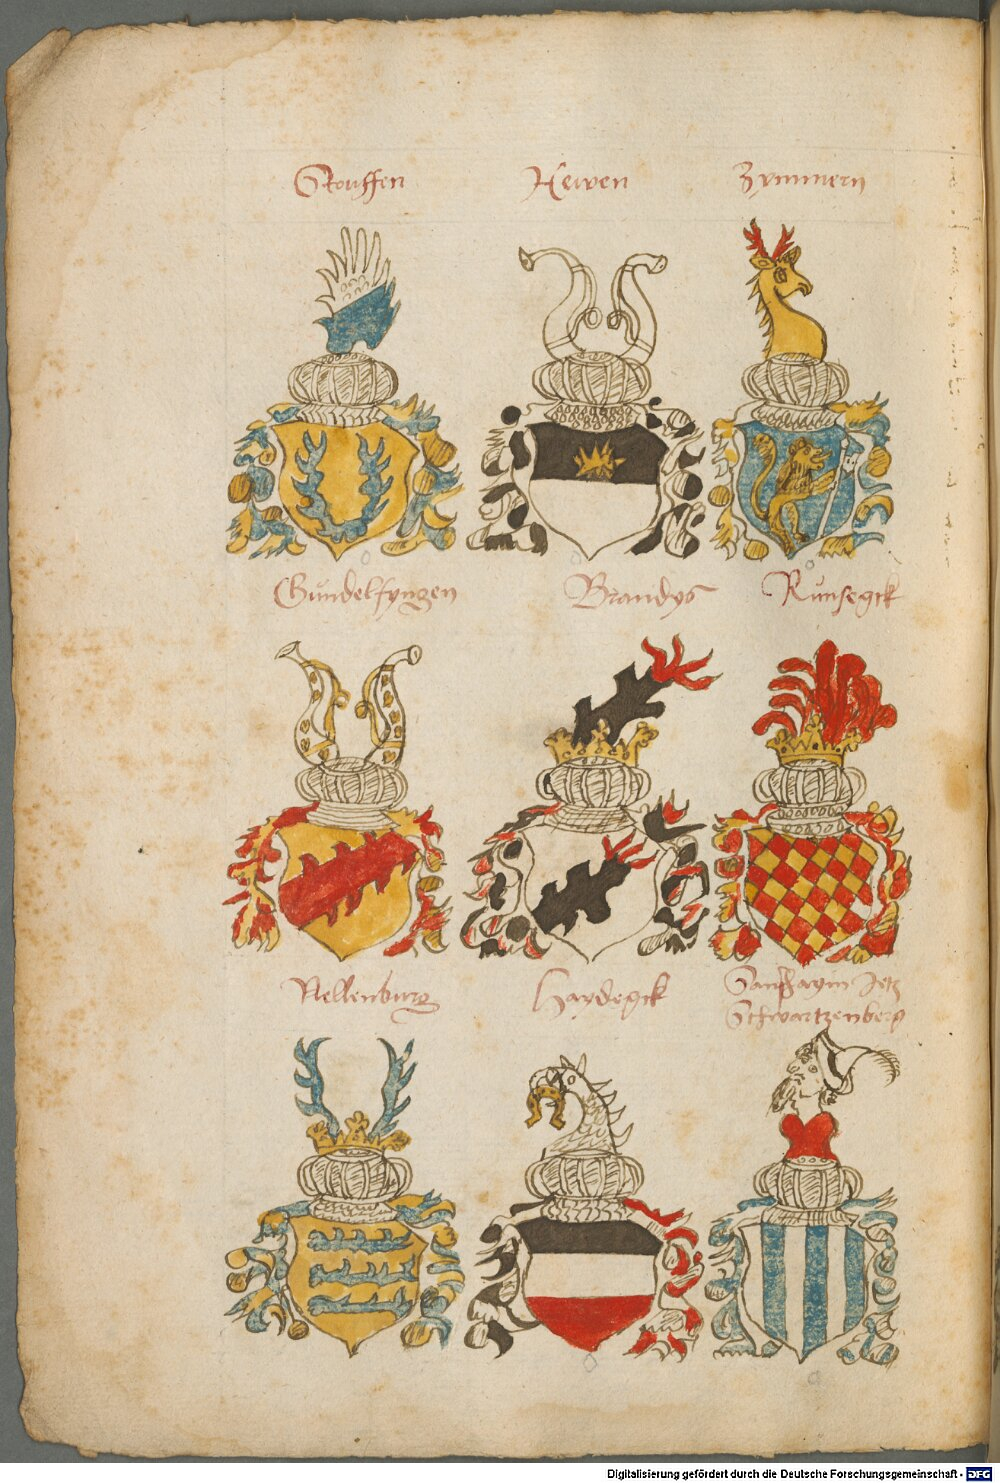 Stouffen
Hewen
Zymmern
Gundelfyngen
Brandys
Runsegck
Nellenburg
Haydegck
Sanßaym Jetz
Schwartzenberg
Digitalisierung gefördert durch die Deutsche Forschungsgemeinschaft - DFG